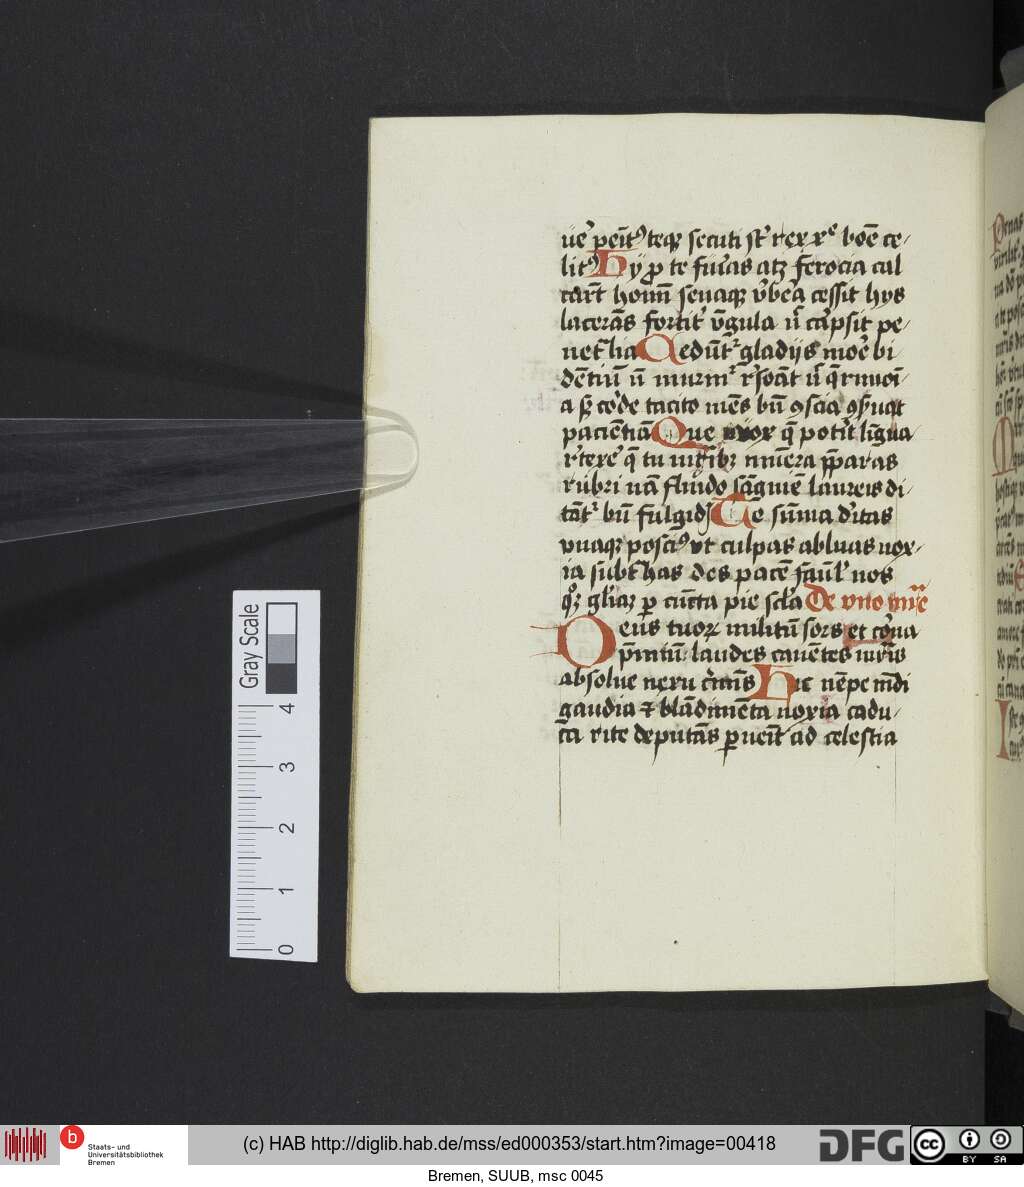 ūe᷒ penit᷒ teq᷒ secuti st᷒ rex xp̄e boe᷒ ce/
lit᷒ Hy ꝓ te furias atqꝫ ferocia cal
cart̄ homī seuaqꝫ v̓bera cessit hys
lacerās fortit᷒ vngula n̄ carpsit pe/
net̄lia Cedūt᷒ gladijs more bi
dentiū n̄ murm᷒ resoat n̄ q̄rimoī
a sꝫ corde tacito mēs bn̄ ꝯscia ꝯs̓uat
pacientiā Que vox q̄ poterit lingua
retexe᷒ q̄ tu mr̄ibꝫ munera p̄paras
rubri nā fluido sāguine laureis di
tāt᷒ bn̄ fulgidis Te sūma deitas
vnaqꝫ poscim᷒ vt culpas abluas nox/
ia subt̄has des pacē faml̓ nos
qꝫ gl̓iaꝫ ꝑ cuncta pie scl̓a De vno mr̄e
Deus tuoꝝ militū sors et corōa
p̄miū laudes canētes mr̄is
absolue nexu crīinis Hic nēpe mūdi
gaudia ⁊ blādimēta noxia cadu/
ca rite deputās ꝑuenit ad celestia
Gray Scale
0 1 2 3 4
b
Staats- und
Universitätsbibliothek
Bremen
(c) HAB http://diglib.hab.de/mss/ed000353/start.htm?image=00418
DFG
cc
BY SA
Bremen, SUUB, msc 0045